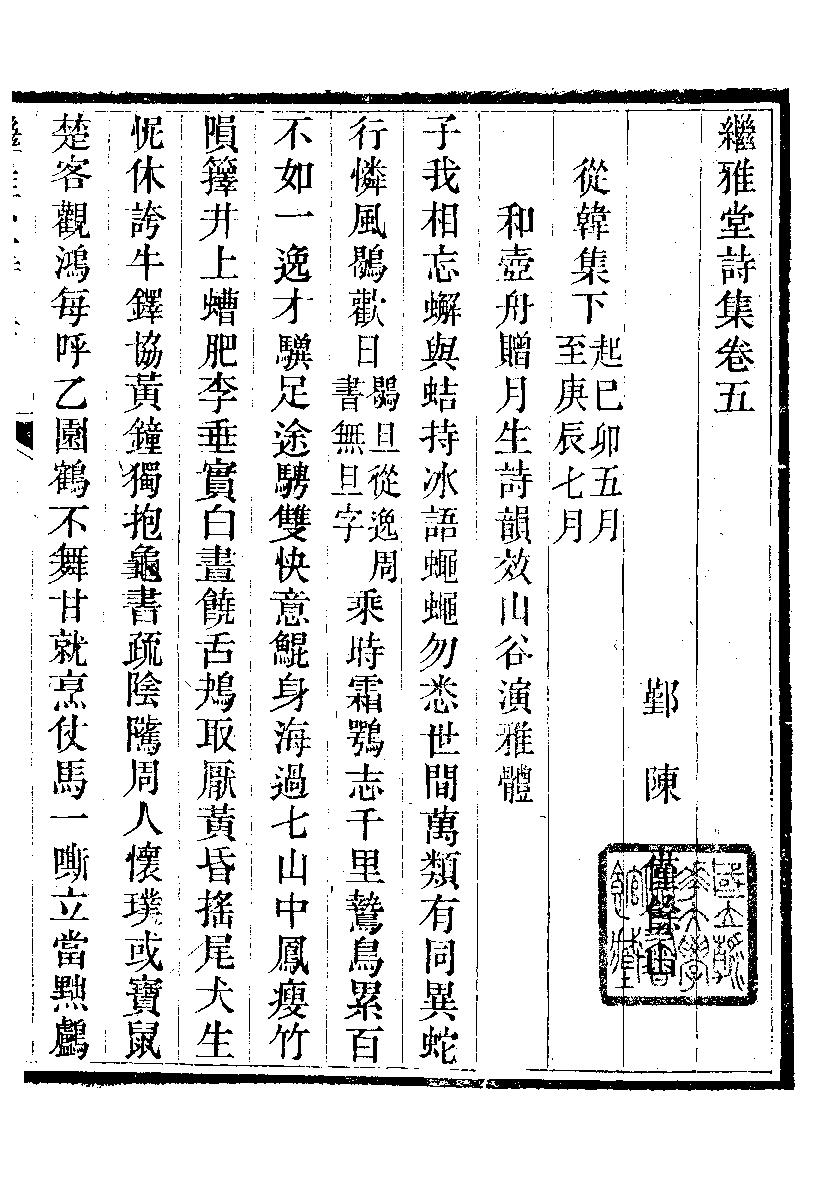 繼雅堂詩集卷五
鄞 陳僅餘山
從韓集下 起巳卯五月
至庚辰七月
和壺舟贈月生詩韻效山谷演雅體
子我相忘蠏與蛣持冰語蠅蠅勿恙世間萬類有同異蛇
行憐風鶡歡日 鶡旦從逸周
書無旦字 乘時霜鶚志千里鷙鳥累百
不如一逸才驥足途騁雙快意鯤身海過七山中鳳瘦竹
隕籜井上螬肥李垂實白晝饒舌鴂取厭黃昏搖尾犬生
怩休誇牛鐸協黃鐘獨抱龜書疏陰隲周人懷璞或寶鼠
楚客觀鴻每呼乙園鶴不舞甘就烹仗馬一嘶立當黜鸕
國立 大學 館藏